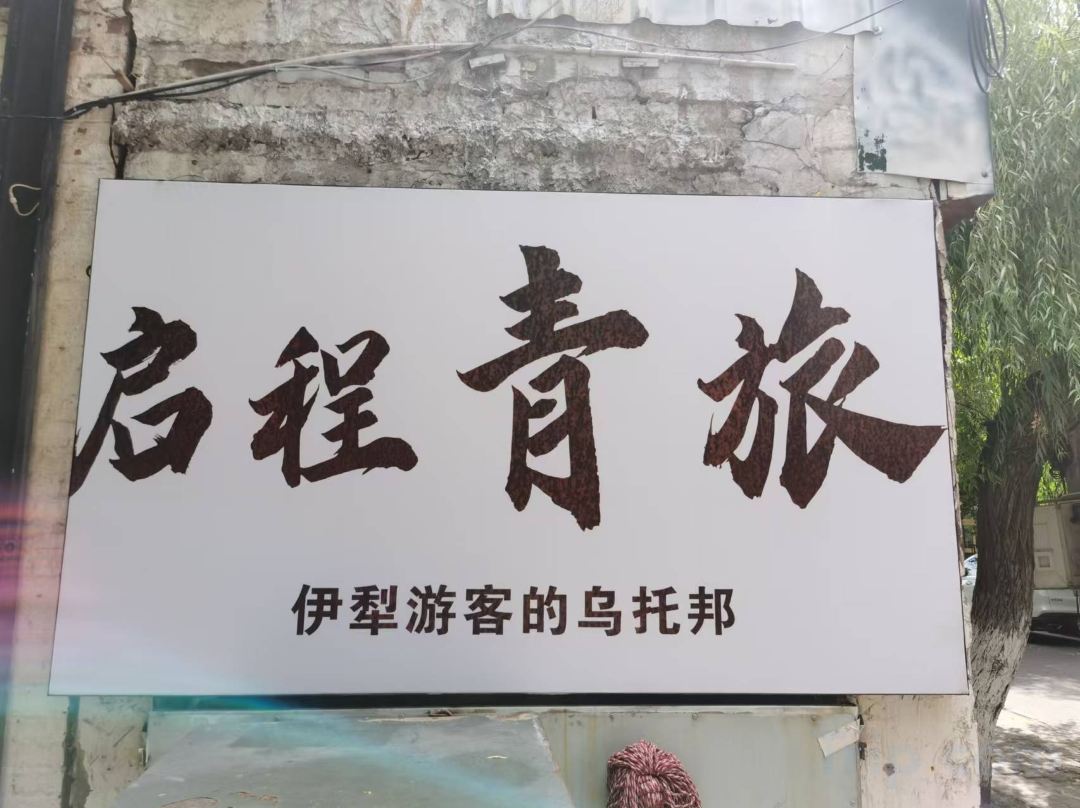 启程青旅
伊犁游客的乌托邦